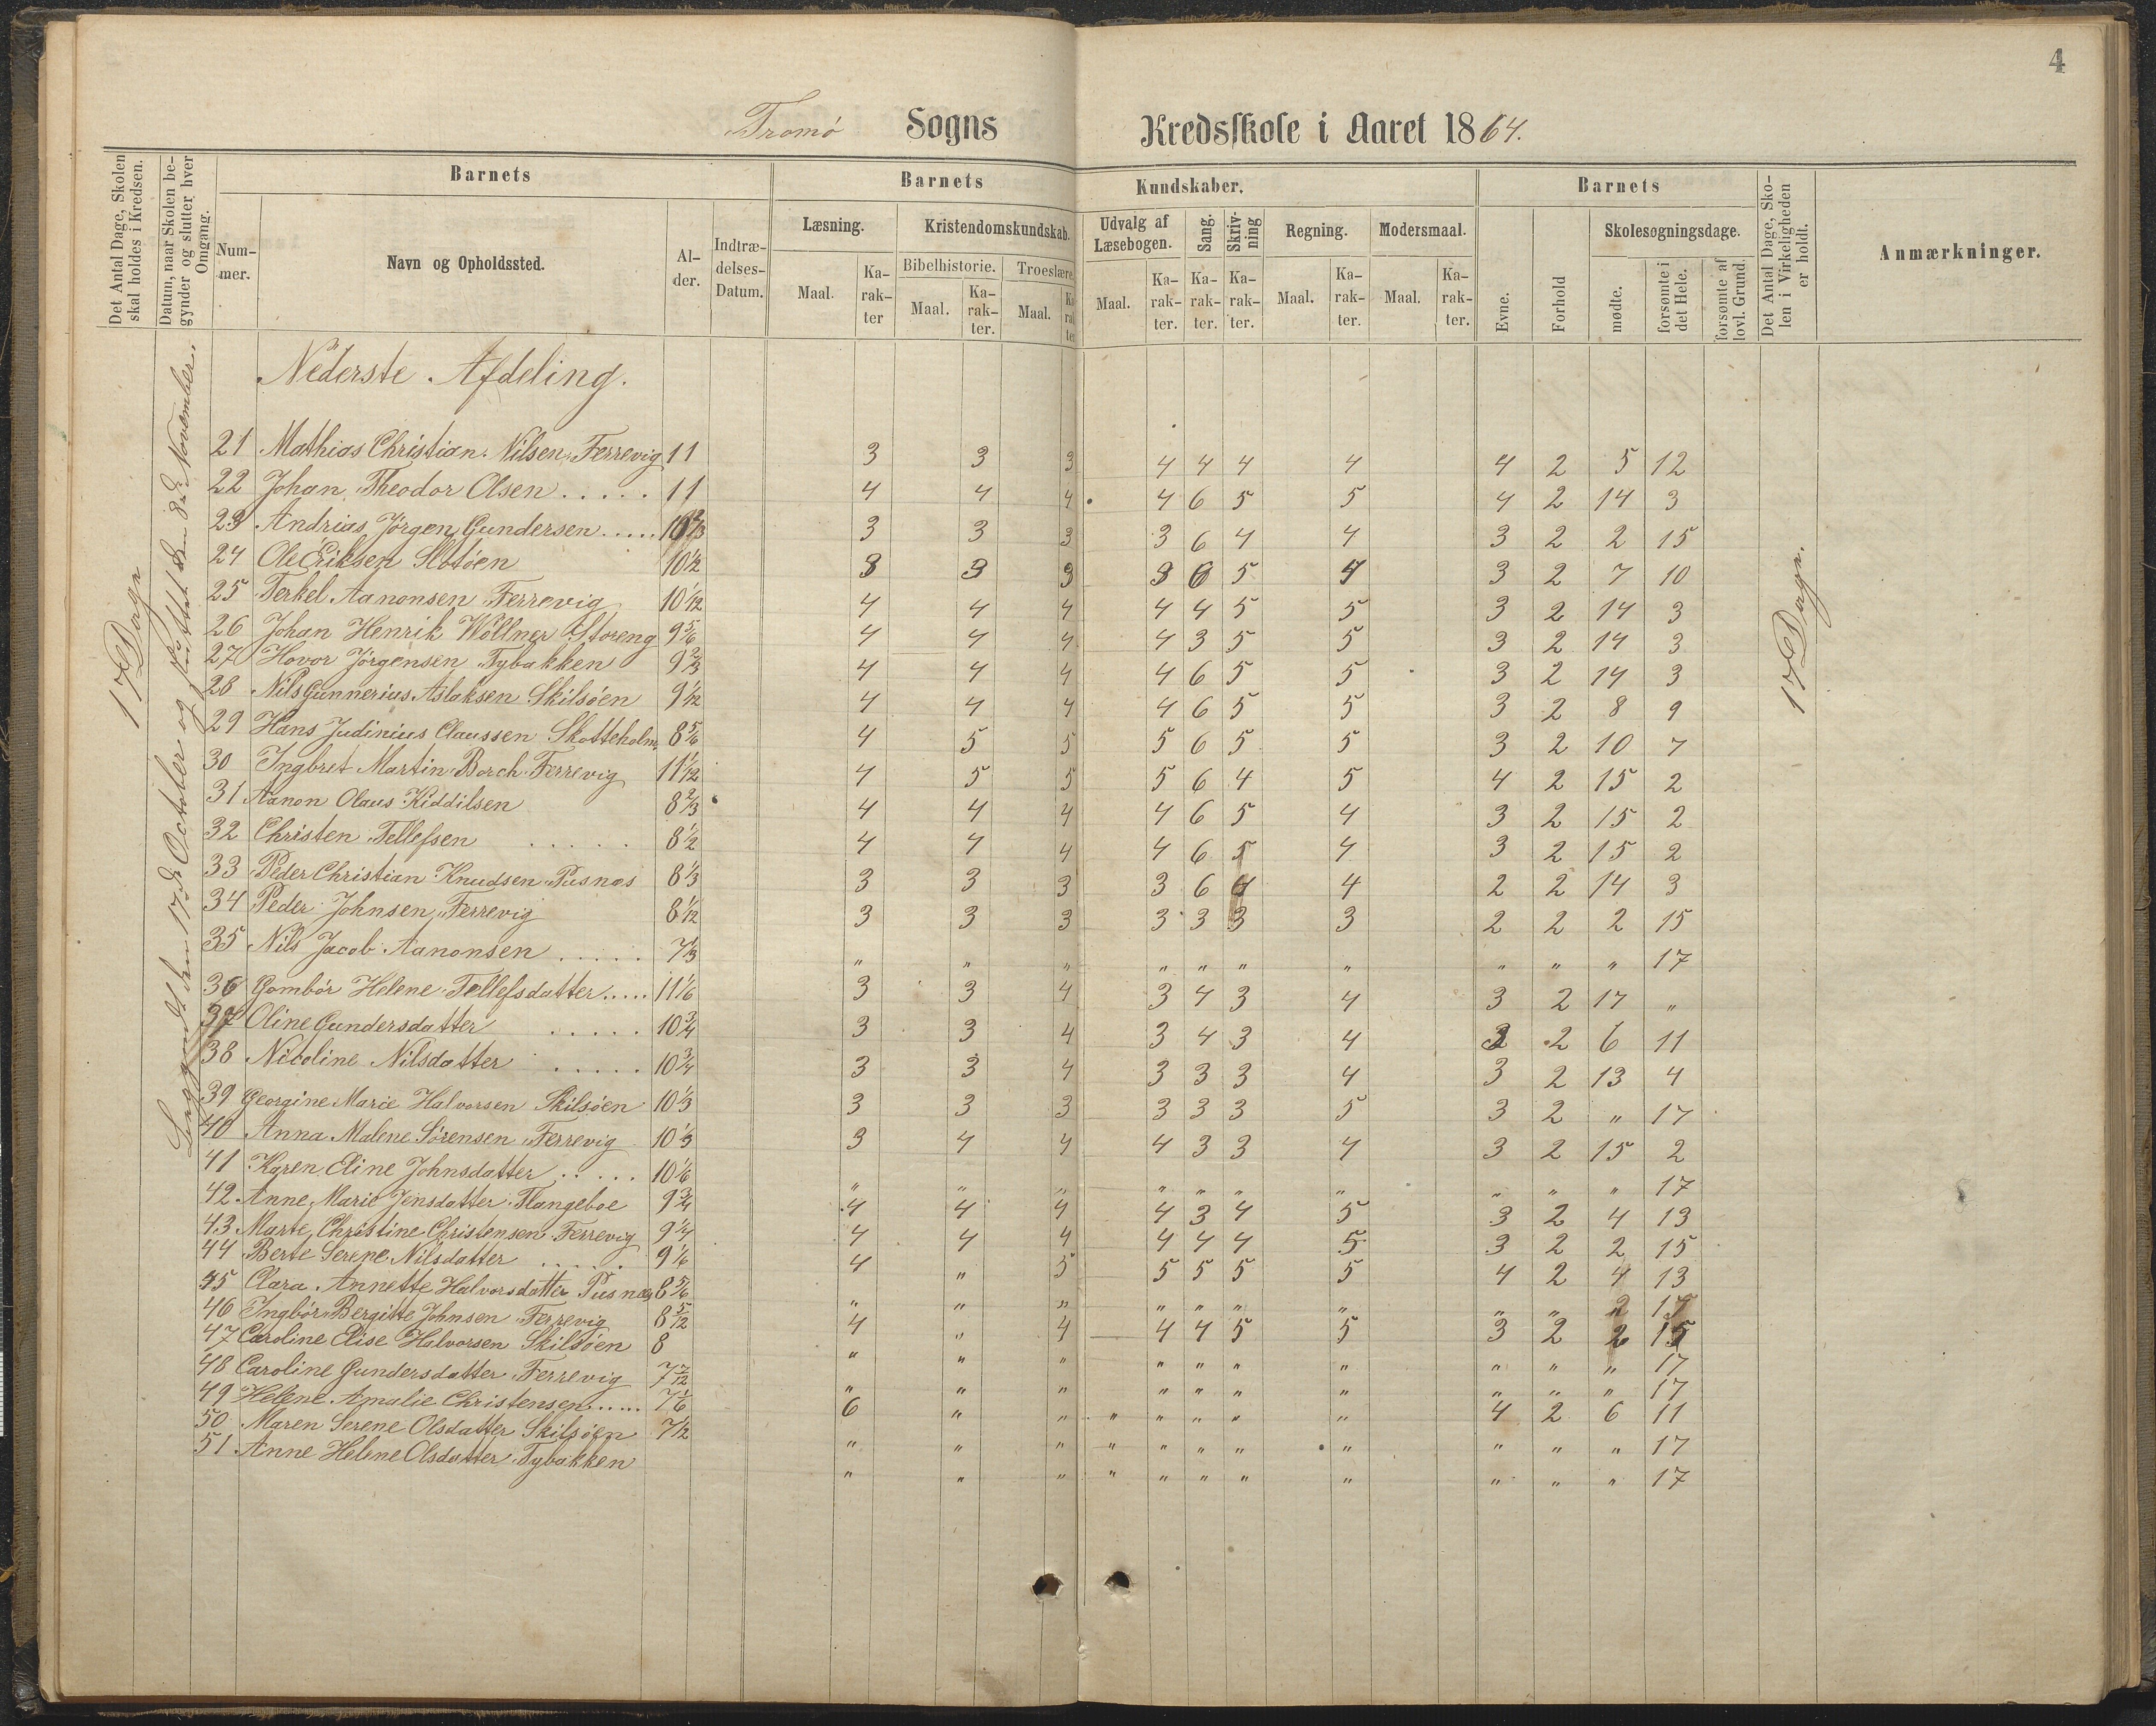 4
Tromö Sogns Kredsskole i Aaret 1864.
Det Antal Dage, Skolen skal holdes i Kredsen.
Datum, naar Skolen begynder og slutter hver Omgang.
Barnets
Nummer.
Navn og Opholdssted.
Alder.
Indtrædelses-Datum.
Barnets Kundskaber.
Læsning.
Maal.
Karakter
Kristendomskundskab.
Bibelhistorie.
Maal.
Karakter.
Troeslære
Maal.
Karakter
Udvalg af Læsebogen.
Maal.
Karakter.
Sang.
Karakter.
Skrivning
Karakter.
Regning.
Maal.
Karakter.
Modersmaal.
Maal.
Karakter.
Barnets
Evne.
Forhold
Skolesøgningsdage.
mødte.
forsømte i det Hele.
forsømte af lovl. Grund.
Det Antal Dage, Skolen i Virkeligheden er holdt.
Anmærkninger.
17 Dage
Begyndt den 17de October og sluttet den 8de November.
17 Dage.
Nederste Afdeling.
21 Mathias Christian Nilsen Færrevig 11 3 3 3 4 4 4 4 4 2 5 12
22 Johan Theodor Olsen ..... 11 4 4 4 4 6 5 5 4 2 14 3
23 Andrias Jörgen Gundersen ..... 10 2/3 3 3 3 3 6 4 4 3 2 2 15
24 Ole Eriksen Slotöen 10 1/2 3 3 3 3 6 5 4 3 2 7 10
25 Terkel Aanonsen Færrevig 10 1/12 4 4 4 4 4 5 5 3 2 14 3
26 Johan Henrik Wöllner Storeng 9 5/6 4 4 4 4 3 5 5 3 2 14 3
27 Hovor Jörgensen Tybakken 9 2/3 4 4 4 4 6 5 5 3 2 14 3
28 Nils Gunnerius Aslaksen Skilsöen 9 1/12 4 4 4 4 6 5 5 3 2 8 9
29 Hans Judinius Claussen Skotteholm 8 5/6 4 5 5 5 6 5 5 3 2 10 7
30 Ingbret Martin Borch Færrevig 11 1/12 4 5 5 5 6 4 5 4 2 15 2
31 Aanon Olaus Kiddilsen 8 2/3 4 4 4 4 6 5 4 3 2 15 2
32 Christen Tellefsen ..... 8 1/2 4 4 4 4 6 5 4 3 2 15 2
33 Peder Christian Knudsen Pusnæs 8 1/3 3 3 3 3 6 4 4 2 2 14 3
34 Peder Johnsen Færrevig 8 1/12 3 3 3 3 3 3 3 2 2 2 15
35 Nils Jacob Aanonsen ..... 7 1/3 " " " " " " " " " " 17
36 Gombör Helene Tellefsdatter ..... 11 1/6 3 3 4 3 4 3 4 3 2 17 "
37 Oline Gundersdatter ..... 10 3/4 3 3 4 3 4 3 4 2 6 11
38 Nicoline Nilsdatter ..... 10 3/4 3 3 4 3 3 3 4 3 2 13 4
39 Georgine Marie Halvorsen Skilsöen 10 1/3 3 3 3 3 3 3 5 3 2 " 17
40 Anna Malene Sörensen Færrevig 10 1/3 3 4 4 4 3 3 4 3 2 15 2
41 Karen Eline Johnsdatter ..... 10 1/6 " " " " " " " " " " 17
42 Anne Marie Jensdatter Flangeboe 9 3/4 4 4 4 4 3 4 5 3 2 4 13
43 Marte Christine Christensen Færrevig 9 1/4 4 4 4 4 4 4 5 3 2 2 15
44 Berte Serene Nilsdatter ..... 9 1/6 4 " 5 5 5 5 5 4 2 4 13
45 Clara Annette Halvorsdatter Pusnæs 8 5/6 " " " " " " " " " 17
46 Ingbör Bergitte Johnsen Færrevig 8 5/12 4 " 4 4 4 5 5 3 2 2 15
47 Caroline Elise Halvorsen Skilsöen 8 " " " " " " " " " " 17
48 Caroline Gundersdatter Færrevig 7 7/12 " " " " " " " " " " 17
49 Helene Amalie Christensen ..... 7 1/6 6 " " " " " " " 4 2 6 11
50 Maren Serene Olsdatter Skilsöen 7 1/2 " " " " " " " " " " " 17
51 Anne Helene Olsdatter Tybakken " " " " " " " " " " " 17